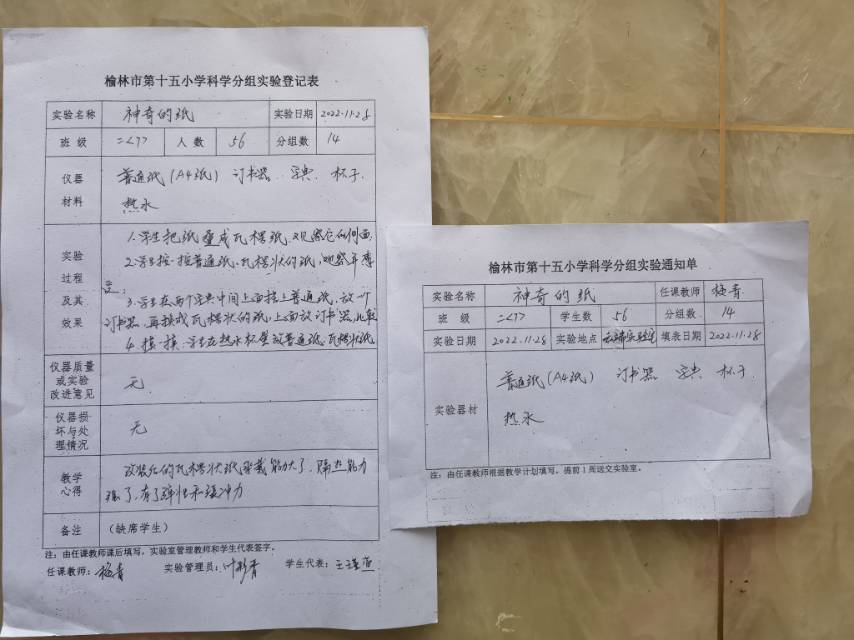 榆林市第十五小学科学分组实验登记表
实验名称 神奇的纸 实验日期 2022.11.28
班 级 二<7> 人 数 56 分组数 14
仪器 普通纸(A4纸) 订书器 字典 杯子
材料 热水
实验 1.学生把纸叠成瓦楞纸,观察它的侧面
过程 2.学生按一按普通纸、瓦楞状的纸,观察其厚
及其 3.学生在两个字典中间上面搭上普通纸,放一个
效果 订书器,再换成瓦楞状的纸,上面放订书器
4.摸一摸,学生在热水杯壁放普通纸、瓦楞状纸
仪器质量
或实验 无
改进意见
仪器损
坏与处 无
理情况
教学 改装后的瓦楞状纸承载能力大了,隔热能力
心得 强了,有了弹性和缓冲力
备注 (缺席学生)
注:由任课教师课后填写,实验室管理教师和学生代表签字。
任课教师: 实验管理员:叶彩青 学生代表:王
榆林市第十五小学科学分组实验通知单
实验名称 神奇的纸 任课教师
班 级 二<7> 学生数 56 分组数 14
实验日期 2022.11.28 实验地点 实验室 填表日期 2022.11.28
实验器材 普通纸(A4纸) 订书器 字典 杯子
热水
注:由任课教师根据教学计划填写,提前1周送交实验室。